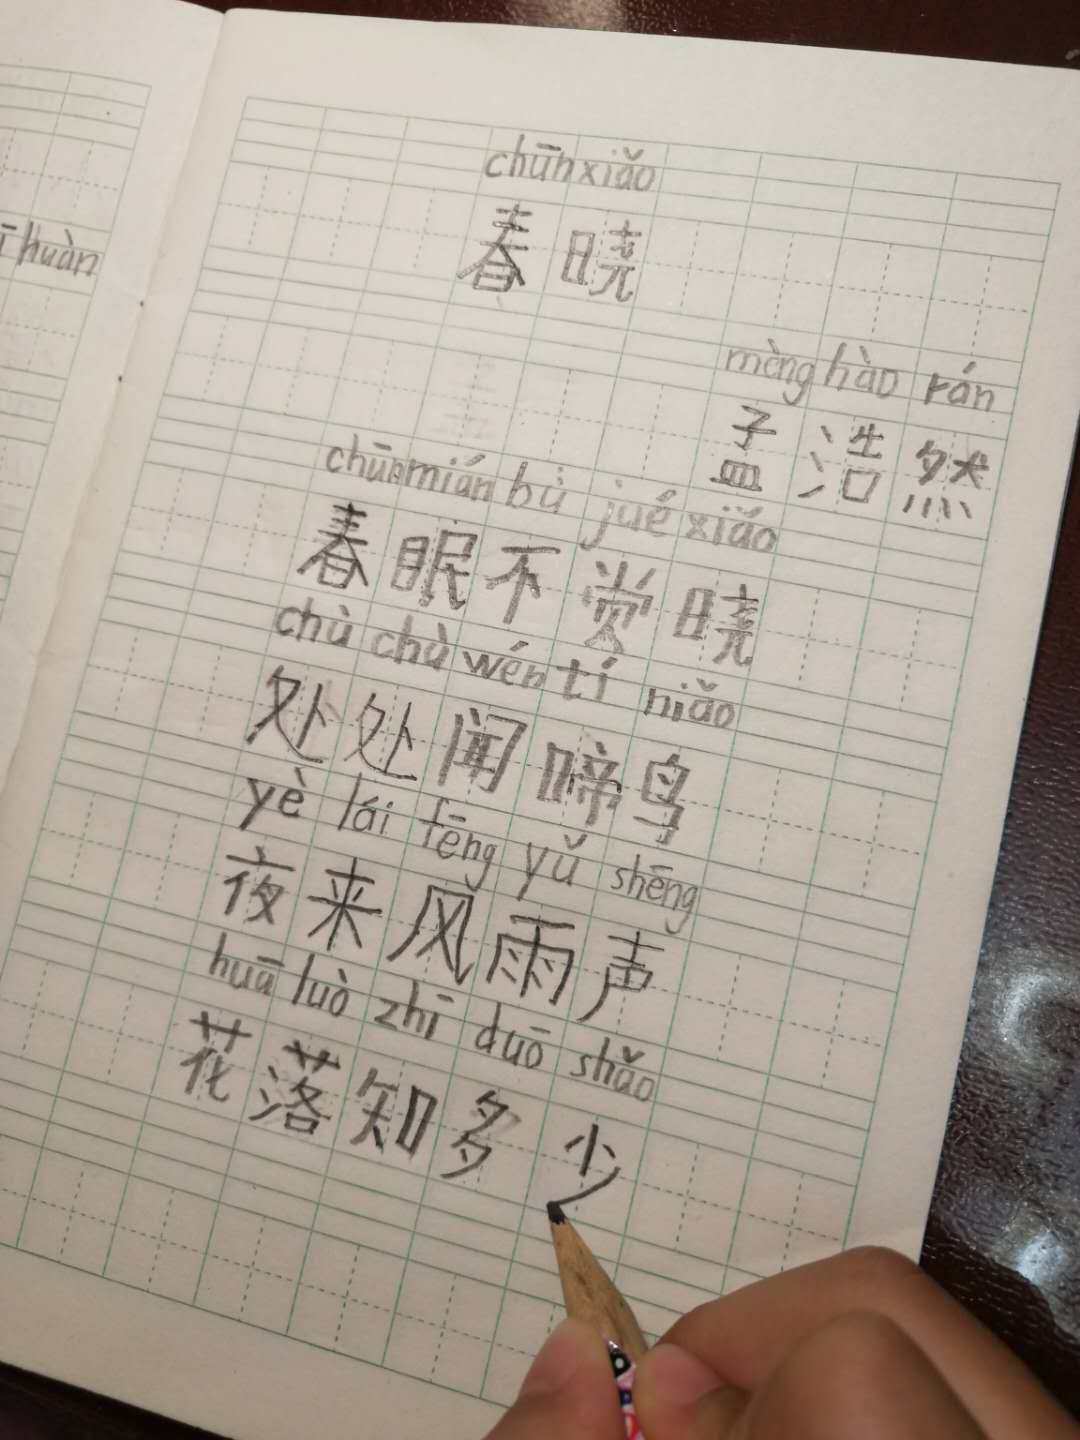 ī huàn
chūn xiǎo
春晓
mèng hào rán
孟浩然
chūn mián bù jué xiǎo
春眠不赏晓
chù chù wén tí niǎo
处处闻啼鸟
yè lái fēng yǔ shēng
夜来风雨声
huā luò zhī duō shǎo
花落知多少